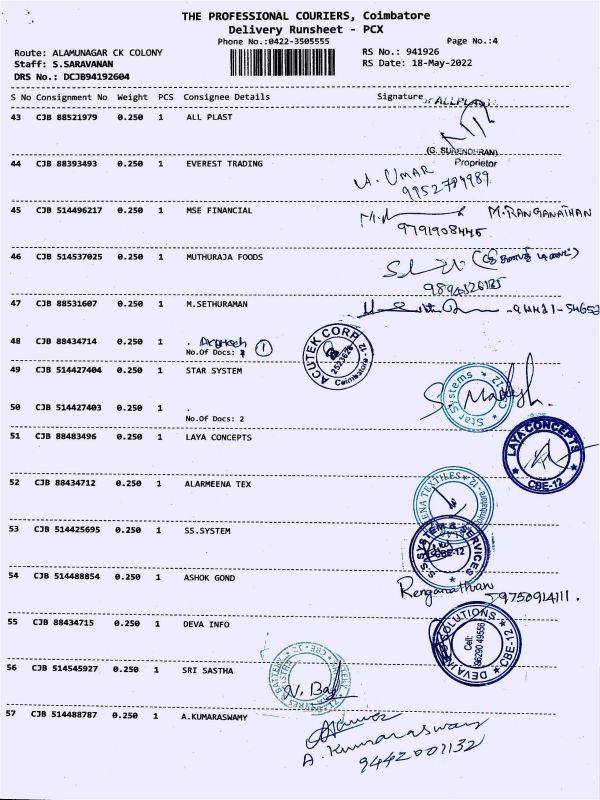 THE PROFESSIONAL COURIERS, Coimbatore
Delivery Runsheet - PCX
Phone No.:0422-3505555
Page No.:4
Route: ALAMUNAGAR CK COLONY
RS No.: 941926
Staff: S.SARAVANAN
RS Date: 18-May-2022
DRS No.: DCJB94192604
S No Consignment No Weight PCS Consignee Details Signature
ALLPLAST
43 CJB 88521979 0.250 1 ALL PLAST
(G. SURENDHRAN)
Proprietor
44 CJB 88393493 0.250 1 EVEREST TRADING
UMAR
45 CJB 514496217 0.250 1 MSE FINANCIAL
M.RANGANATHAN
9791908445
46 CJB 514537025 0.250 1 MUTHURAJA FOODS
47 CJB 88531607 0.250 1 M.SETHURAMAN
48 CJB 88434714 0.250 1 .
No.Of Docs: 1
ACUTEK CORP
Coimbatore - 12
49 CJB 514427404 0.250 1 STAR SYSTEM
Star Systems
50 CJB 514427403 0.250 1 .
No.Of Docs: 2
51 CJB 88483496 0.250 1 LAYA CONCEPTS
LAYA CONCEPTS
CBE-12
52 CJB 88434712 0.250 1 ALARMEENA TEX
53 CJB 514425695 0.250 1 SS.SYSTEM
S.S. SYSTEM & SERVICES
CBE-12
54 CJB 514488854 0.250 1 ASHOK GOND
Renganathan
9750914111.
55 CJB 88434715 0.250 1 DEVA INFO
DEVA INFO SOLUTIONS
CBE-12
Cell:
56 CJB 514545927 0.250 1 SRI SASTHA
57 CJB 514488787 0.250 1 A.KUMARASWAMY
A. Kumaraswamy
9442001132